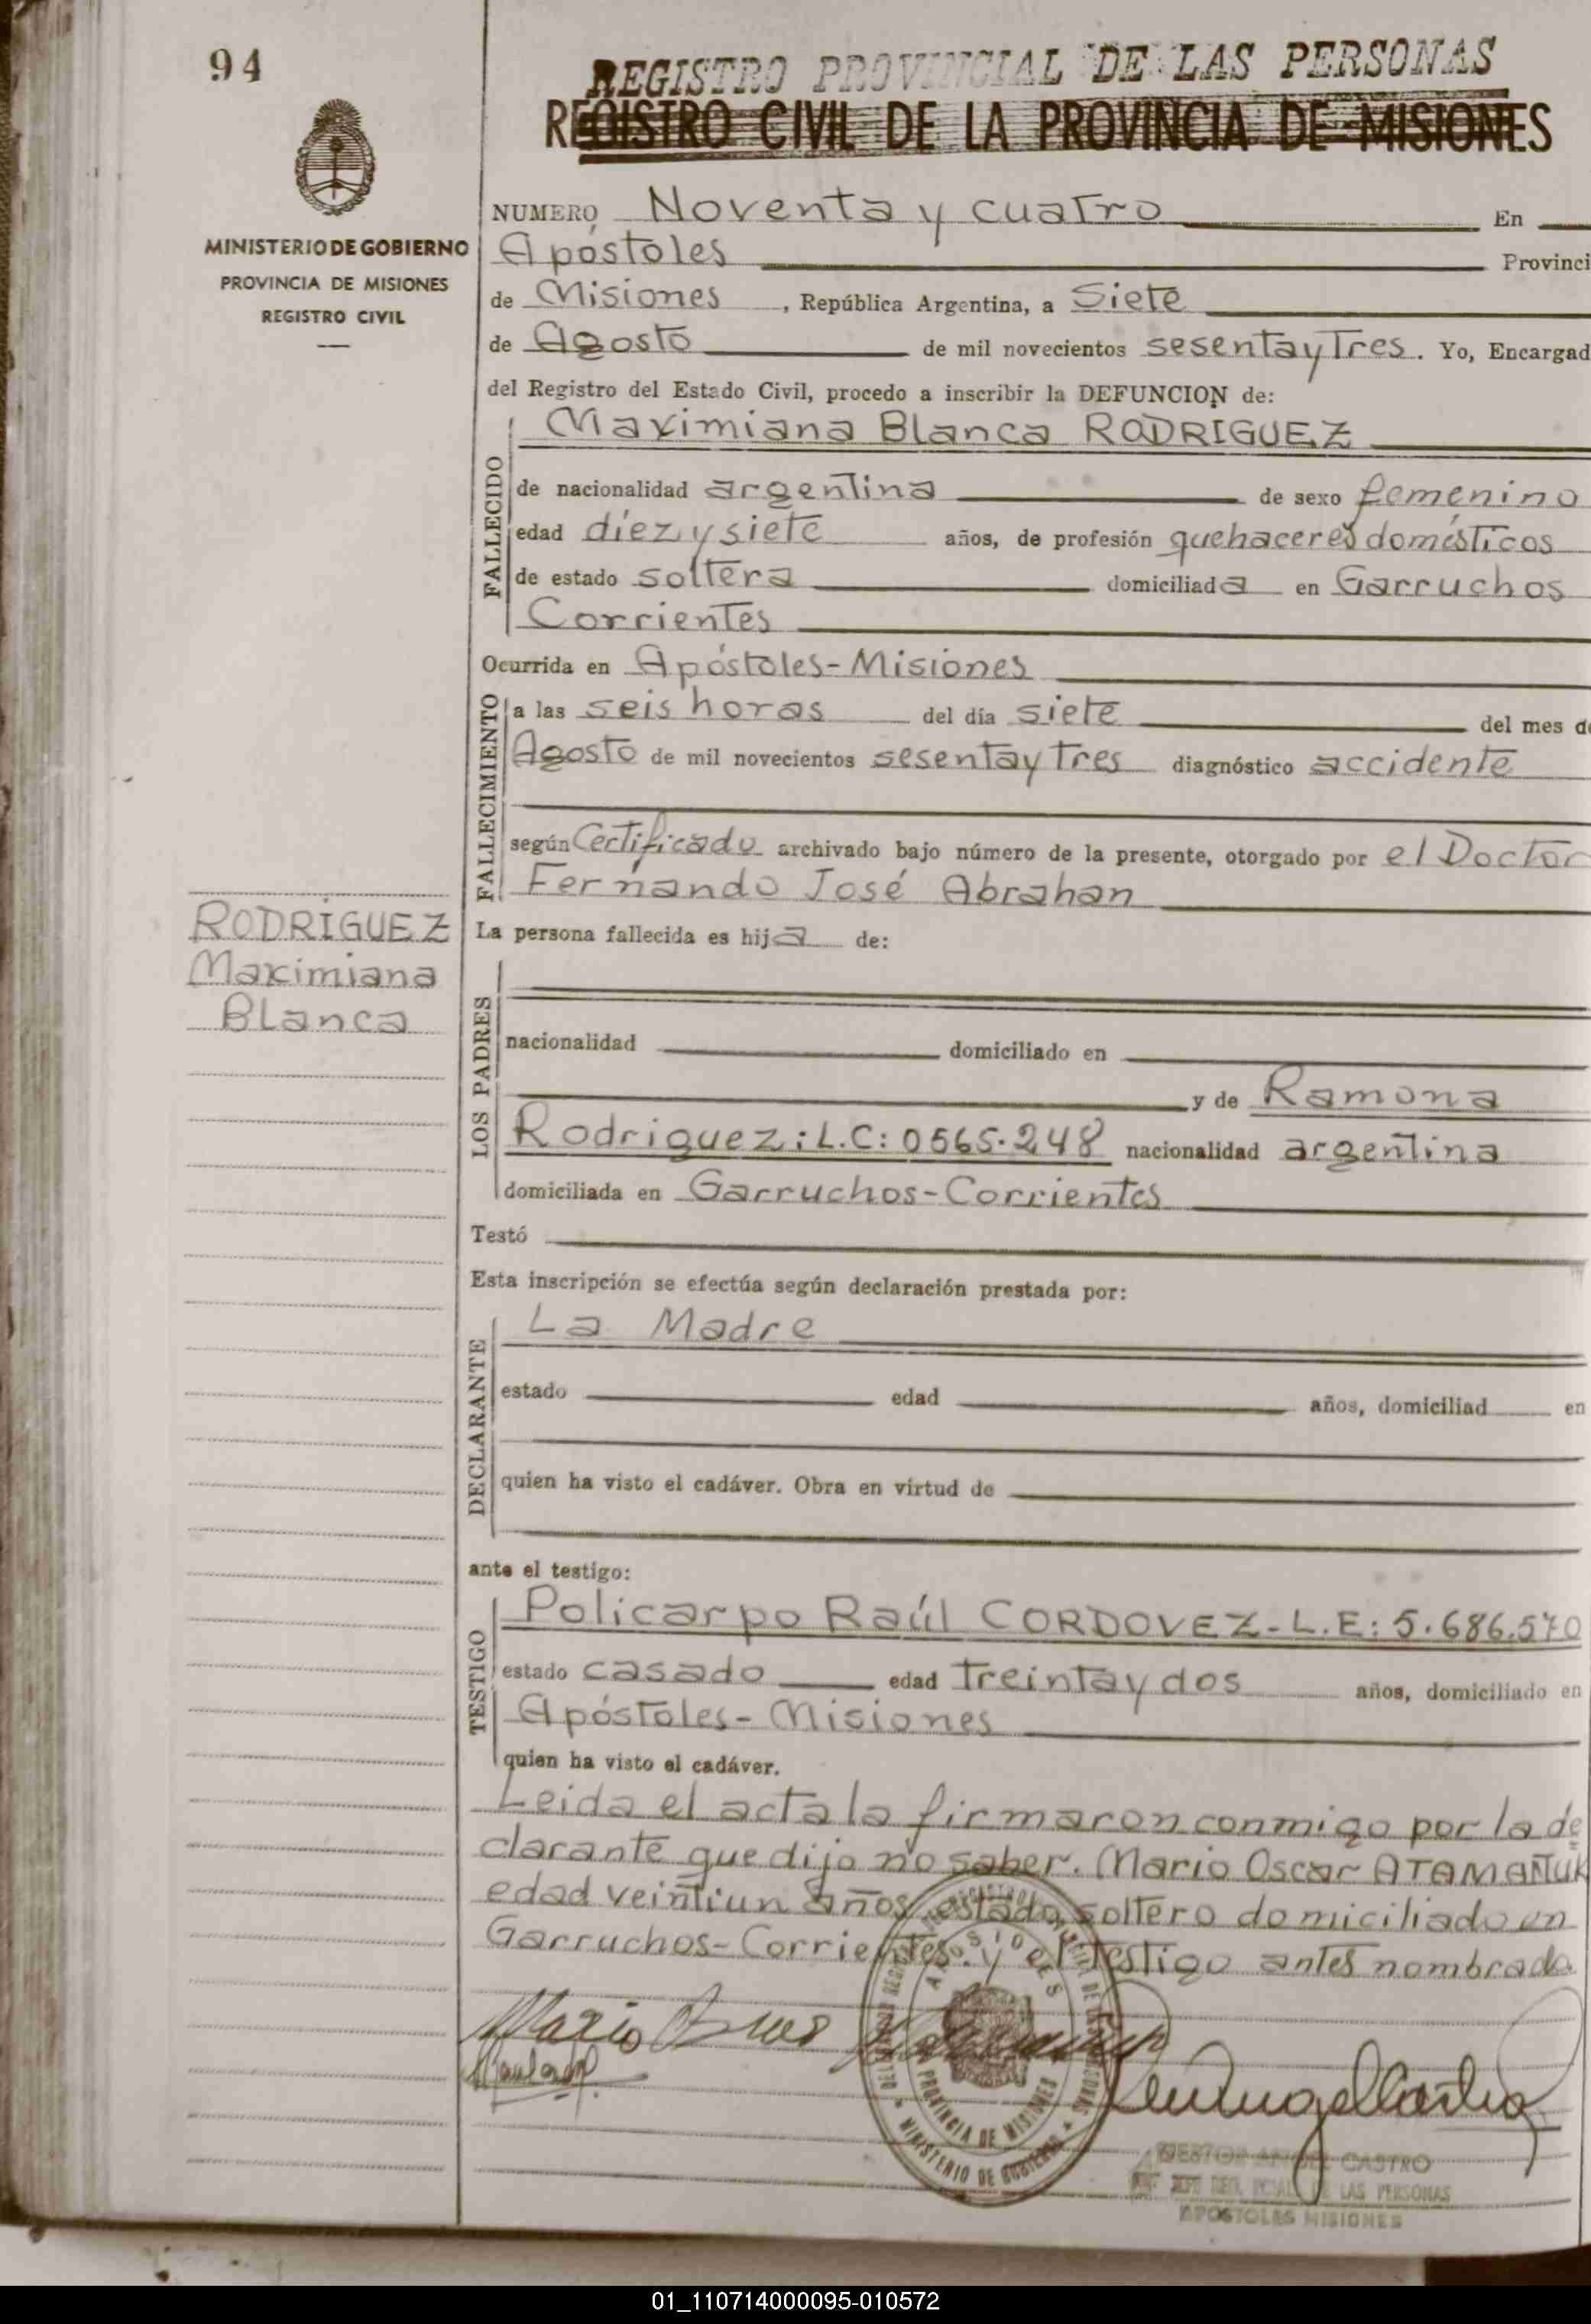 94
REGISTRO PROVINCIAL DE LAS PERSONAS
REGISTRO CIVIL DE LA PROVINCIA DE MISIONES
MINISTERIO DE GOBIERNO
PROVINCIA DE MISIONES
REGISTRO CIVIL
NUMERO Noventa y cuatro En
Apóstoles Provinci
de Misiones, República Argentina, a Siete
de Agosto de mil novecientos sesenta y Tres. Yo, Encargad
del Registro del Estado Civil, procedo a inscribir la DEFUNCION de:
FALLECIDO
Maximiana Blanca RODRIGUEZ
de nacionalidad argentina de sexo femenino
edad diez y siete años, de profesión quehaceres domésticos
de estado soltera domiciliada en Garruchos
Corrientes
Ocurrida en Apóstoles-Misiones
FALLECIMIENTO
a las seis horas del día siete del mes de
Agosto de mil novecientos sesenta y Tres diagnóstico accidente
según Certificado archivado bajo número de la presente, otorgado por el Doctor
Fernando José Abrahan
RODRIGUEZ
Maximiana
Blanca
La persona fallecida es hija de:
LOS PADRES
nacionalidad domiciliado en
y de Ramona
Rodriguez: L.C: 0565.248 nacionalidad argentina
domiciliada en Garruchos-Corrientes
Testó
Esta inscripción se efectúa según declaración prestada por:
DECLARANTE
La Madre
estado edad años, domiciliad en
quien ha visto el cadáver. Obra en virtud de
ante el testigo:
TESTIGO
Policarpo Raúl CORDOVEZ-L.E: 5.686.570
estado casado edad Treinta y dos años, domiciliado en
Apóstoles-Misiones
quien ha visto el cadáver.
Leida el acta la firmaron conmigo por la de
clarante que dijo no saber. Mario Oscar ATAMAÑUK
edad veintiun años estado soltero domiciliado en
Garruchos-Corrientes. y el testigo antes nombrado.
Mario
APOSTOLES
PROVINCIA DE MISIONES
MINISTERIO DE GOBIERNO
NESTOR ANGEL CASTRO
LAS PERSONAS
APOSTOLES MISIONES
01_110714000095-010572